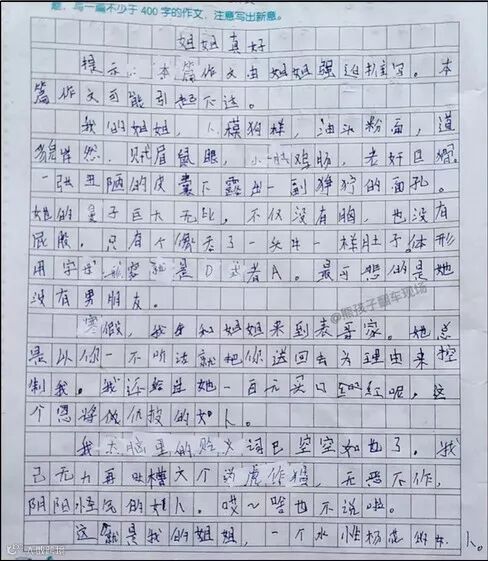 意，写一篇不少于400字的作文，注意写出新意。
姐姐真好
提示：本篇作文由姐姐强迫描写。本
篇作文可能引起不适。
我的姐姐，人模狗样，油头粉面，道
貌岸然，贼眉鼠眼，小肚鸡肠，老奸巨猾。
一张丑陋的皮囊下露出一副狰狞的面孔。
她的鼻子巨大无比，不仅没有胸，也没有
屁股，只有个像吞了一头牛一样肚子。体形
用字母 就是D或者A。最可悲的是她
没有男朋友。
寒假，我和姐姐来到表哥家。她总
是以你一不听话就把你送回去为理由来控
制我。我还给过她一百元买口红呢，这
个恩将仇报的女人。
我大脑里的贬义词已空空如也了。我
已无力再 这个为虎作猖，无恶不作，
阴阳怪气的女人。哎~啥也不说啦。
这就是我的姐姐，一个水性杨花的女人。
@熊孩子翻车现场